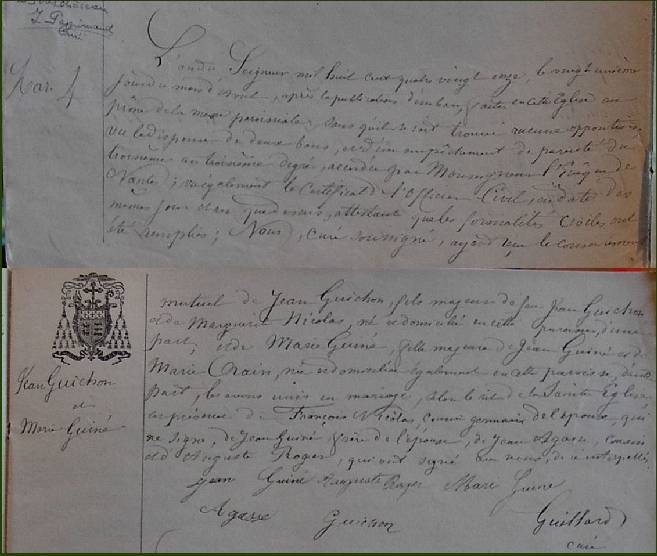 J. Perrimaud
Curé
Mar. 4
L'an du Seigneur mil huit cent quatre vingt onze, le vingt unième
jour du mois d'avril, après la publication d'un ban, faite en cette Eglise au
prône de la messe paroissiale, sans qu'il se soit trouvé aucune opposition
vu la dispense de deux bans, et d'un empêchement de parenté du
troisième au troisième degré, accordée par Monseigneur l'Evêque de
Nantes; vu également le certificat de l'Officier Civil, en date des
mêmes jour et an que dessus, attestant que les formalités civiles ont
été remplies; Nous, curé soussigné, ayant reçu le consentement
mutuel de Jean Guichon, fils majeur de feu Jean Guichon
et de Marguerite Nicolas, né et domicilié en cette paroisse, d'une
part; et de Marie Guiné, fille majeure de Jean Guiné et de
Marie Orain, née et domiciliée également en cette paroisse, d'autre
part, les avons unis en mariage, selon le rit de la Sainte Eglise,
en présence de François Nicolas, cousin germain de l'époux, qui
ne signe, de Jean Guiné frère de l'épouse, de Jean Agasse, cousin
et d'Auguste Roger, qui ont signé avec nous, de ce interpellés.
Jean Guichon
et
Marie Guiné
Jean Guiné Auguste Roger Marie Guiné
Agasse Guichon Guillard
curé